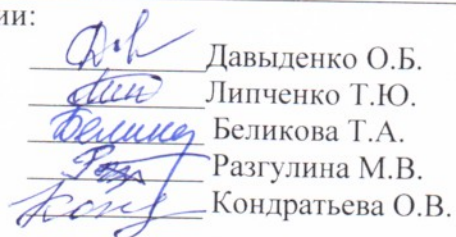 ии:
Давыденко О.Б.
Липченко Т.Ю.
Беликова Т.А.
Разгулина М.В.
Кондратьева О.В.